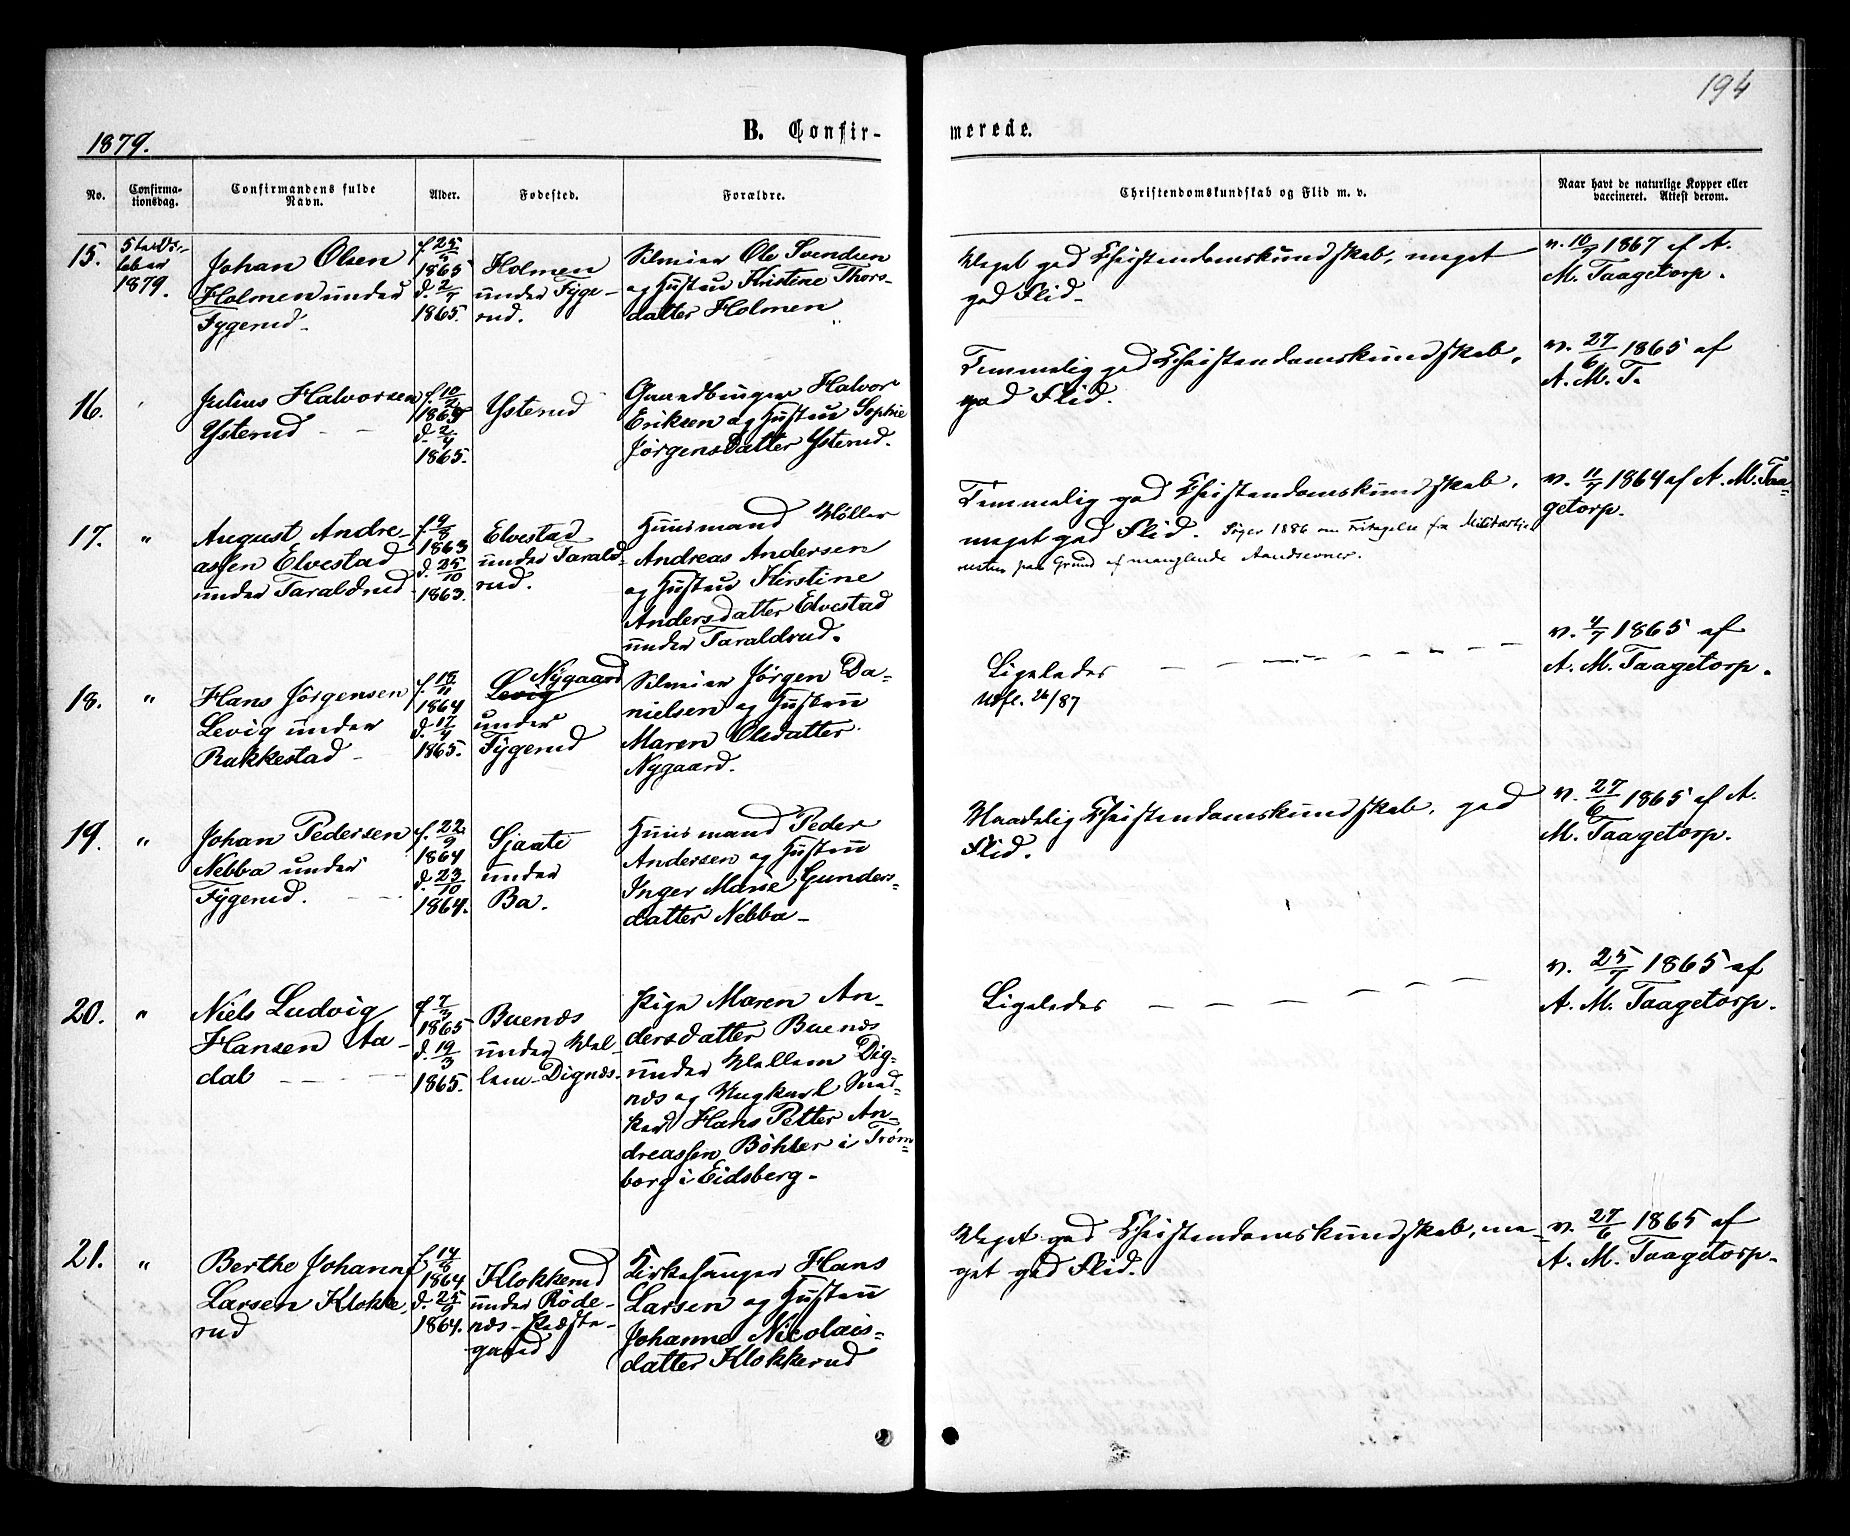 194
1879.
B. Confir-
merede.
No.
Confirma-
tionsdag.
Confirmandens fulde
Navn.
Alder.
Fødested.
Forældre.
Christendomskundskab og Flid m. v.
Naar havt de naturlige Kopper eller
vaccineret. Attest derom.
15.
5te Octo-
ber
1879.
Johan Olsen
Holmen under
Fygerud.
f. 25/2
1865
d. 2/4
1865.
Holmen
under Fyge-
rud.
Selveier Ole Svendsen
og Hustru Kristine Thors-
datter Holmen
Meget god Christendomskundskab, meget
god Flid.
v. 10/9 1867 af A.
M. Taagetorp.
16.
Julius Halvorsen
Ysterud
f. 10/2
1865
d. 2/4
1865.
Ysterud
Gaardbruger Halvor
Eriksen og Hustru Sophie
Jørgensdatter Ysterud.
Temmelig god Christendomskundskab,
god Flid.
v. 27/6 1865 af
A. M. T.
17.
"
August Andre-
assen Elvestad
under Taraldrud
f. 19/8
1863
d. 25/10
1863.
Elvestad
under Tarald-
rud.
Huusmand Møller
Andreas Andersen
og Hustru Kirstine
Andersdatter Elvestad
under Taraldrud.
Temmelig god Christendomskundskab,
meget god Flid. Søger 1886 om Fritagelse fra Militærtje-
nesten paa Grund af manglende Aandsevner.
v. 11/7 1864 af A. M. Taa-
getorp.
18.
"
Hans Jørgensen
Levig under
Rakkestad
f. 18/11
1864
d. 17/4
1865.
Nygaard
Levig
under
Fygerud
Selveier Jørgen Da-
nielsen og Hustru
Maren Olsdatter
Nygaard.
Ligeledes
Udfl. 24/87
v. 4/7 1865 af
A. M. Taagetorp.
19.
"
Johan Pedersen
Nebba under
Fygerud.
f. 22/9
1864
d. 23/10
1864.
Sjaate
under
Ba.
Huusmand Peder
Andersen og Hustru
Inger Marie Gunders-
datter Nebba
Maadelig Christendomskundskab, god
Flid.
v. 27/6 1865 af A.
M. Taagetorp.
20.
"
Niels Ludvig
Hansen Aa-
dal
f. 7/3
1865
d. 19/3
1865.
Buenæs
under Mel-
lem-Dignæs.
Pige Maren An-
dersdatter Buenæs
under Mellem Dig-
næs og Ungkarl Sned-
ker Hans Petter An-
dreassen Böhler i Tröm-
borg i Eidsberg.
Ligeledes
v. 25/7 1865 af
A. M. Taagetorp.
21.
"
Berthe Johanne
Larsen Klokke-
rud
f. 14/8
1864
d. 25/9
1864.
Klokkerud
under Röde-
næs-Præste-
gaard.
Kirkesanger Hans
Larsen og Hustru
Johanne Nicolais-
datter Klokkerud
Meget god Christendomskundskab, me-
get god Flid.
v. 27/6 1865 af
A. M. Taagetorp.